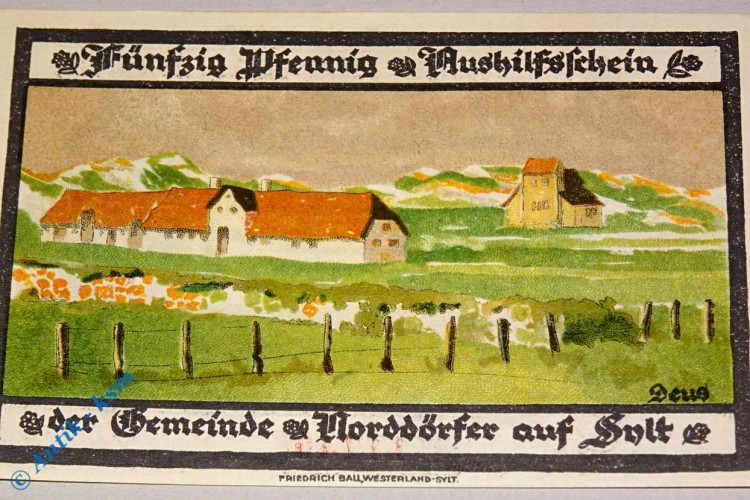 Fünfzig Pfennig Aushilfsschein
Deus
der Gemeinde Norddörfer auf Sylt
FRIEDRICH BAU, WESTERLAND-SYLT.
© Antik-ksm